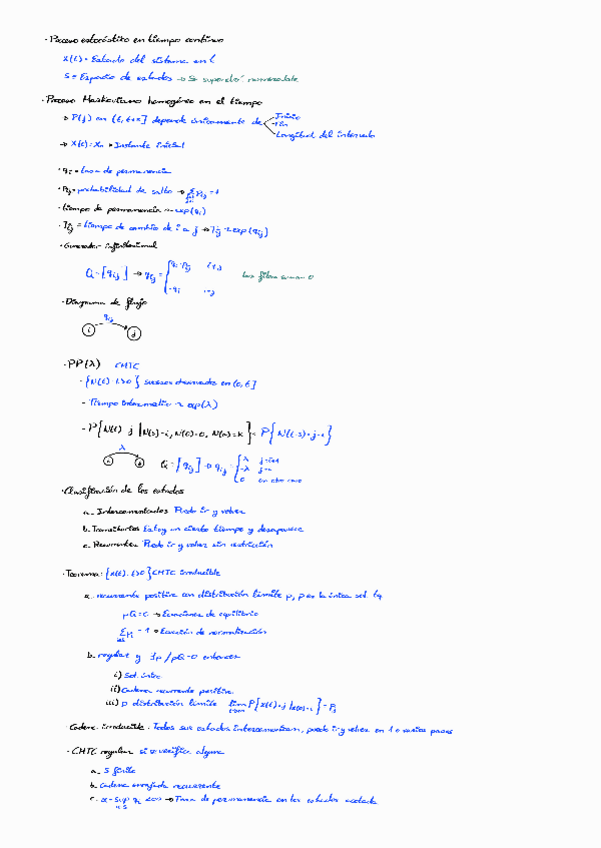 · Proceso estocástico en tiempo continuo
X(t) = Estado del sistema en t
S = Espacio de estados → Se supondrá numerable
· Proceso Markoviano homogéneo en el tiempo
→ P(j) en (t, t+s] depende únicamente de
Inicio
Fin
Longitud del intervalo
→ X(0) = X₀ = Instante inicial
· qi = tasa de permanencia
· Pij = probabilidad de salto → Σ Pij = 1
· tiempo de permanencia ~ exp(qi)
· Tij = tiempo de cambio de i a j → Tij ~ exp(qij)
· Generador infinitesimal
Q = [qij] → qij = { qi·Pij i≠j
-qi i=j
Las filas suman 0
· Diagrama de flujo
qij
i j
· PP(λ) CMTC
· {N(t), t≥0} sucesos observados en (0, t]
- Tiempo entre ~ exp(λ)
- P{N(t)=j | N(s)=i, N(0)=0, N(u)=k} = P{N(t-s)=j-i}
λ
i j
Q = [qij] → qij = { λ j=i+1
-λ j=i
0 en otro caso
· Clasificación de los estados
a. Intercomunicados Puedo ir y volver
b. Transitorios Estoy un cierto tiempo y desaparece
c. Recurrentes Puedo ir y volver sin restricción
· Teorema: {X(t), t≥0} CMTC irreducible
a. recurrente positiva con distribución límite p, p es la única sol. tq
pQ=0 → Ecuaciones de equilibrio
Σ Pi = 1 → Ecuación de normalización
b. regular y ∃p / pQ=0 entonces
i) Sol. única
ii) Cadena recurrente positiva
iii) p distribución límite lim P{X(t)=j | X(0)=i} = Pj
· Cadena irreducible · Todos sus estados intercomunican, puedo ir y volver en 1 o varios pasos
· CMTC regular si se verifica alguna
a. S finito
b. Cadena recurrente
c. α = Sup qi < ∞ → Tasa de permanencia en los estados acotada